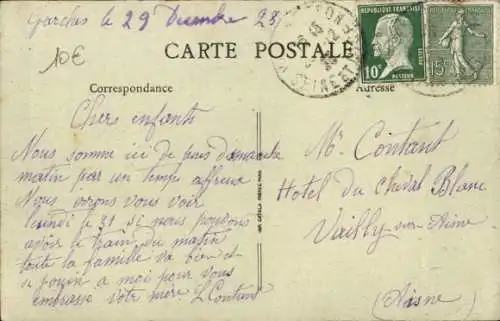 Garches le 29 Decembre 28
10€
CARTE POSTALE
Correspondance
Adresse
REPUBLIQUE FRANÇAISE
10c
POSTES
PASTEUR
15c
SEINE ET
Chers enfants
Nous somme ici de puis dimanche
matin par un temps affreux
Nous irons vous voir
lundi le 31 si nous pouvons
avoir le train du matin
toute la famille va bien et
se jouin a moi pour vous
embrasse votre mère L Contant
Mr Contant
Hotel du Cheval Blanc
Vailly sur Aisne
(Aisne)